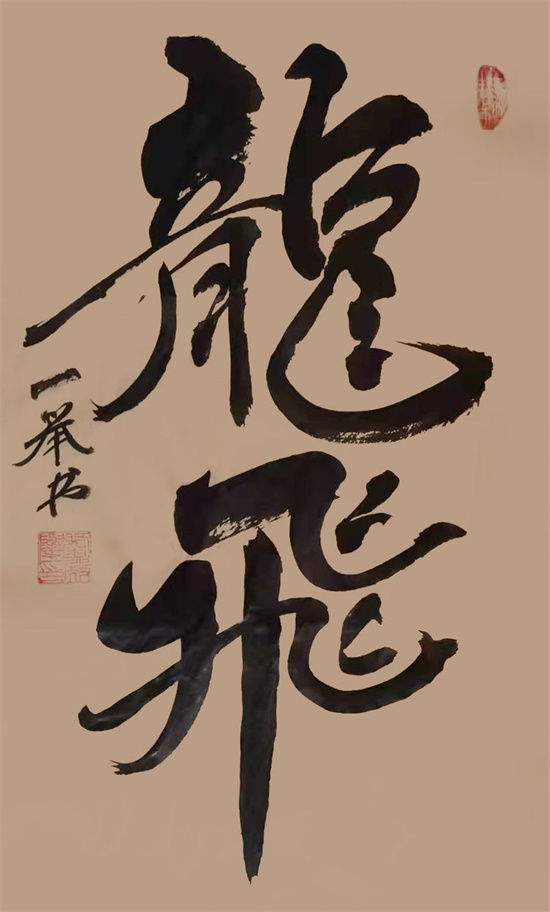 龍飛
一举书